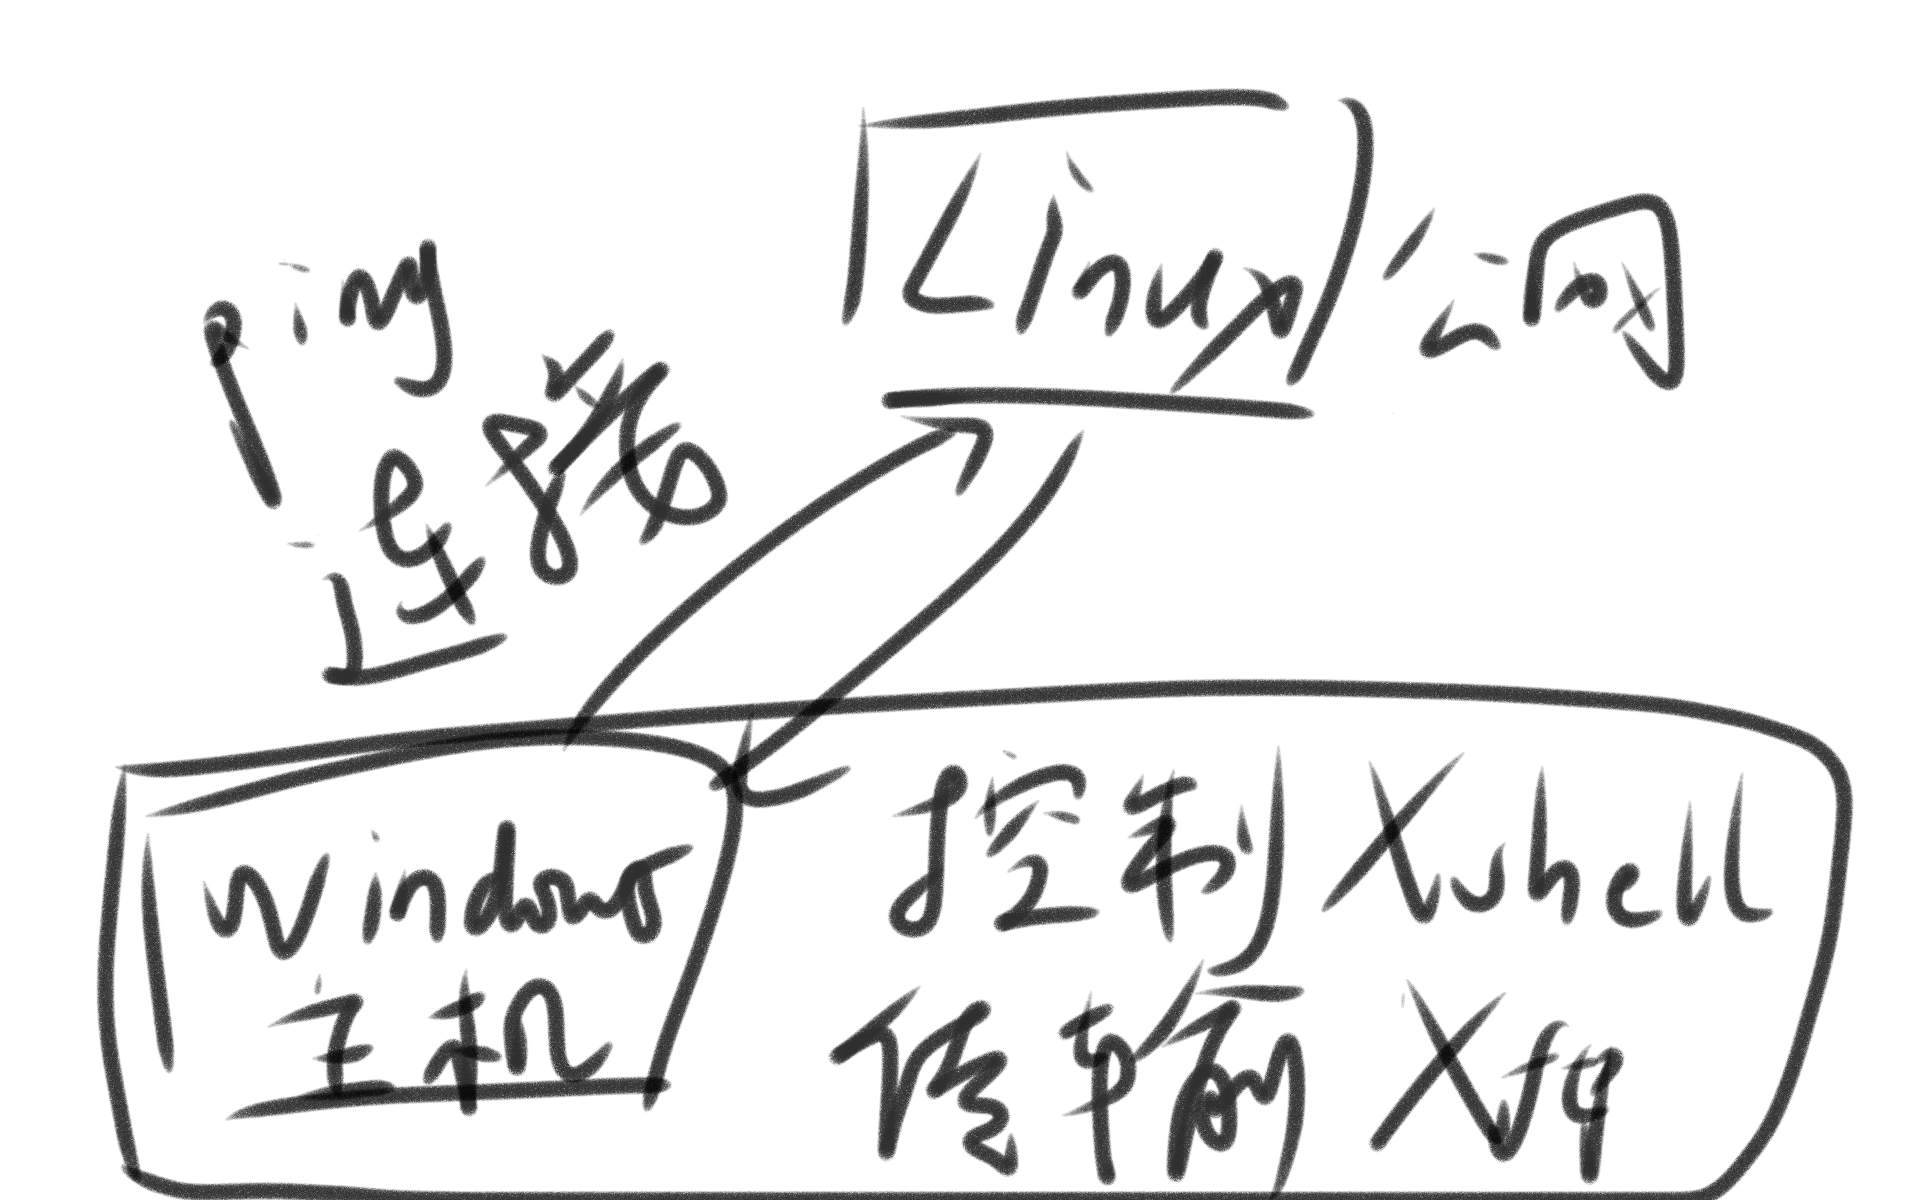 Linux 公网
ping
连接
windows
主机
控制 Xshell
传输 Xftp